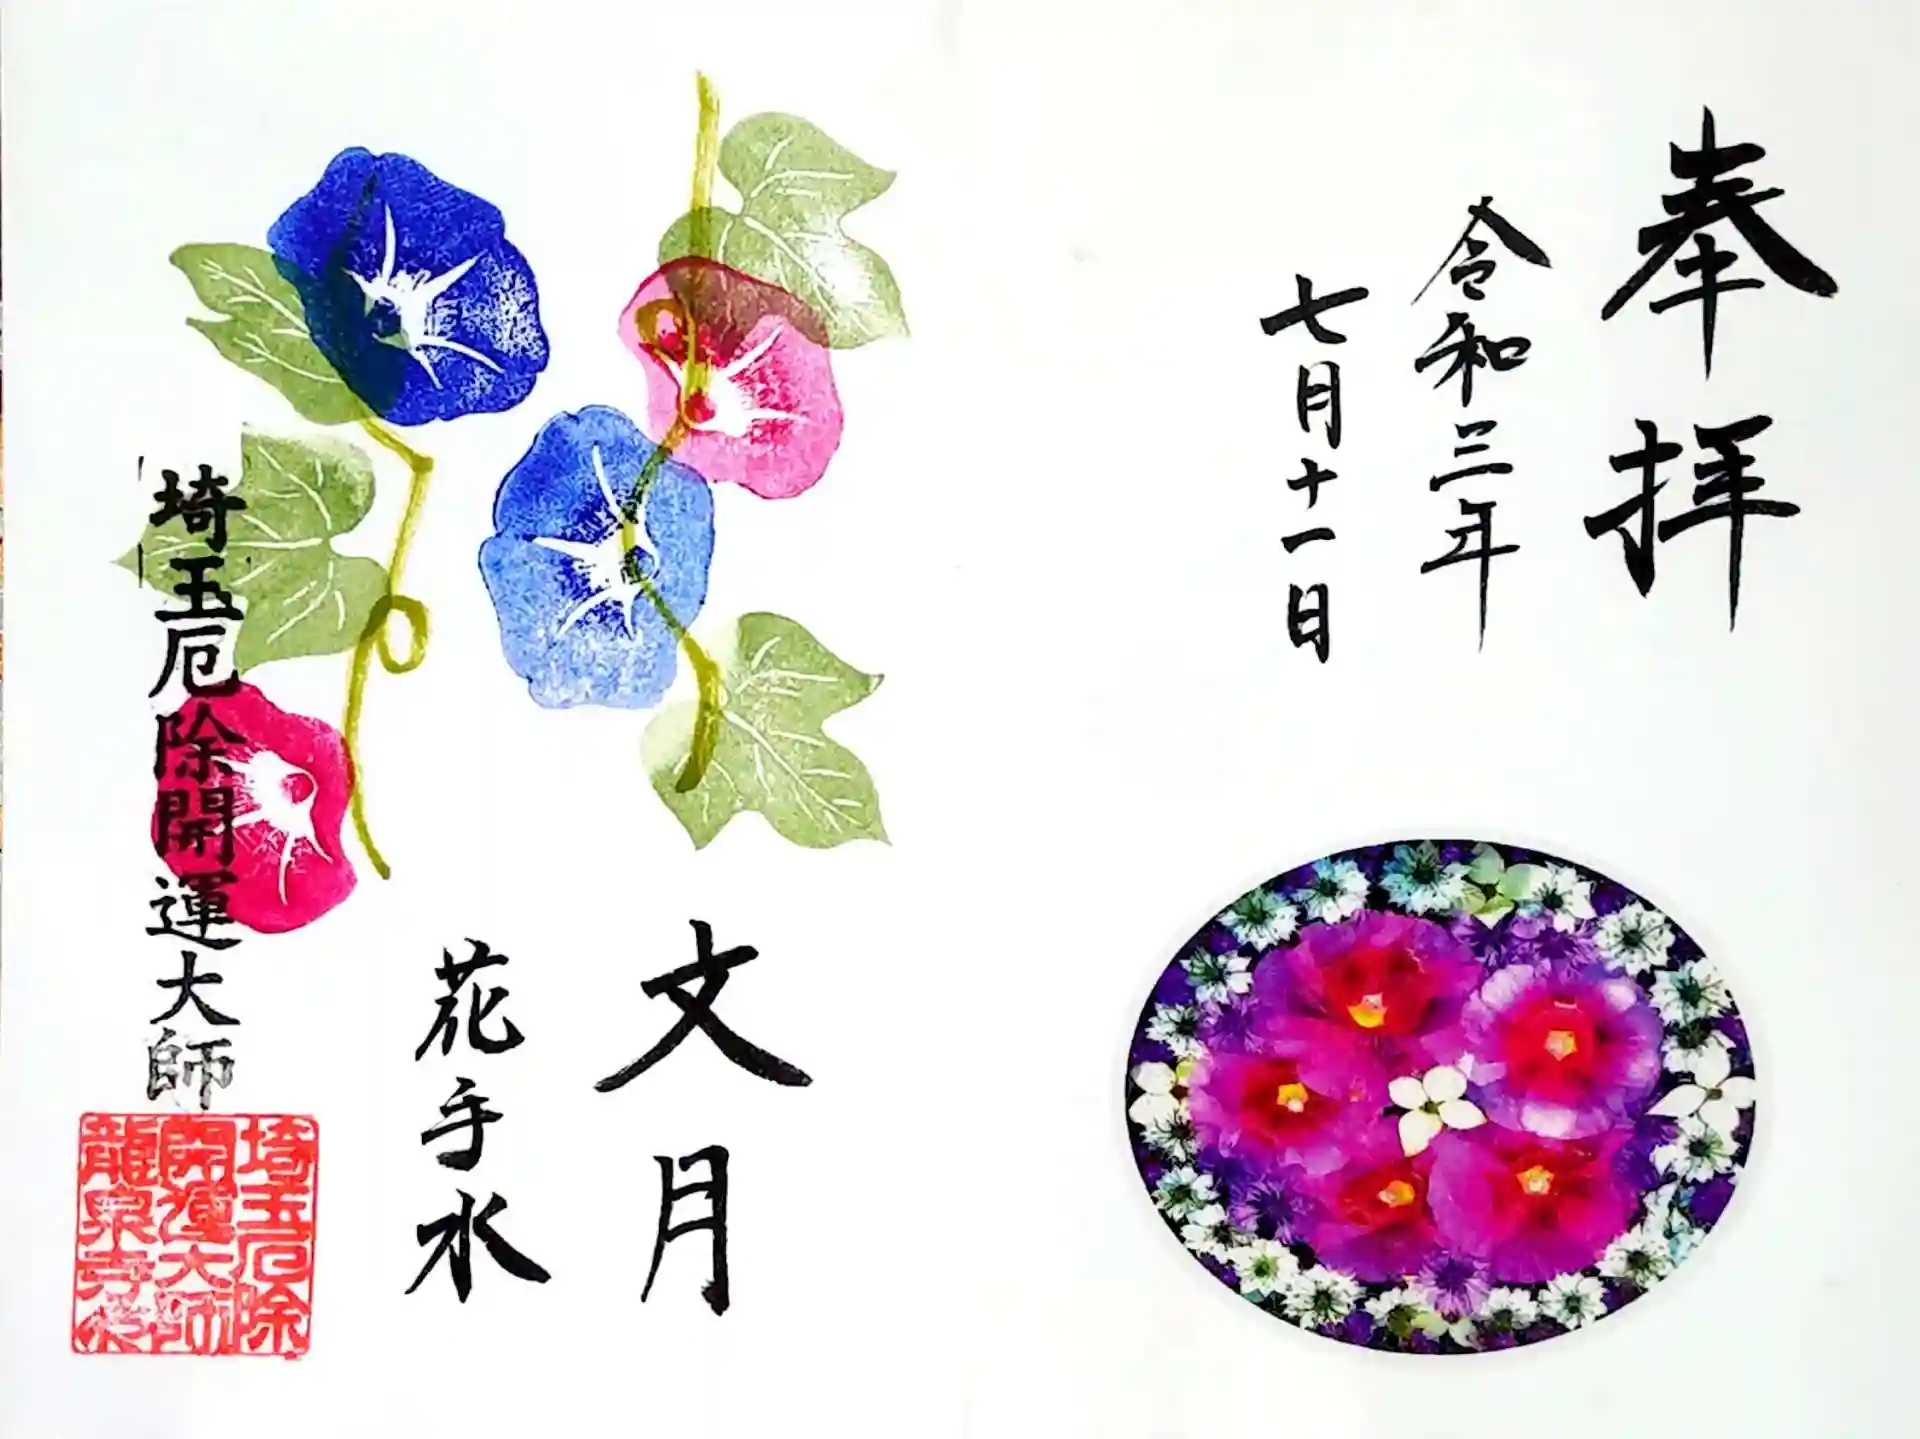 奉拝
令和三年
七月十一日
文月
花手水
埼玉厄除開運大師
埼玉厄除
開運大師
龍泉寺